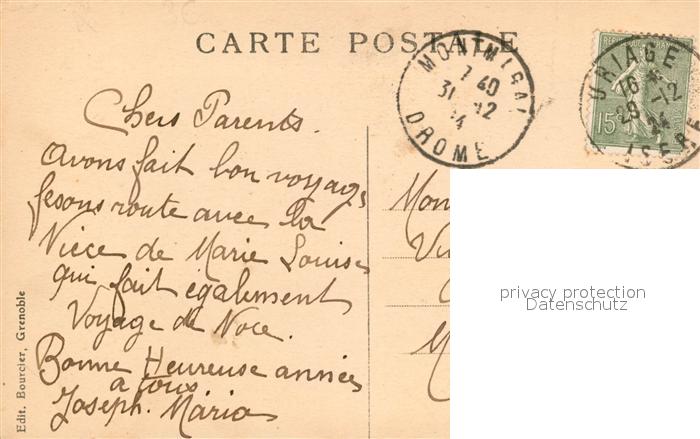 CARTE POSTALE
MONTMIRAL
7 40
31 12
24
DROME
URIAGE
16
29 -12
24
ISERE
15
Chers Parents.
Avons fait bon voyage
fesons route avec la
Nièce de Marie Louise
qui fait également
Voyage de Noce.
Bonne Heureuse année
a tous
Joseph. Maria
Edit. Bourcier, Grenoble
privacy protection
Datenschutz